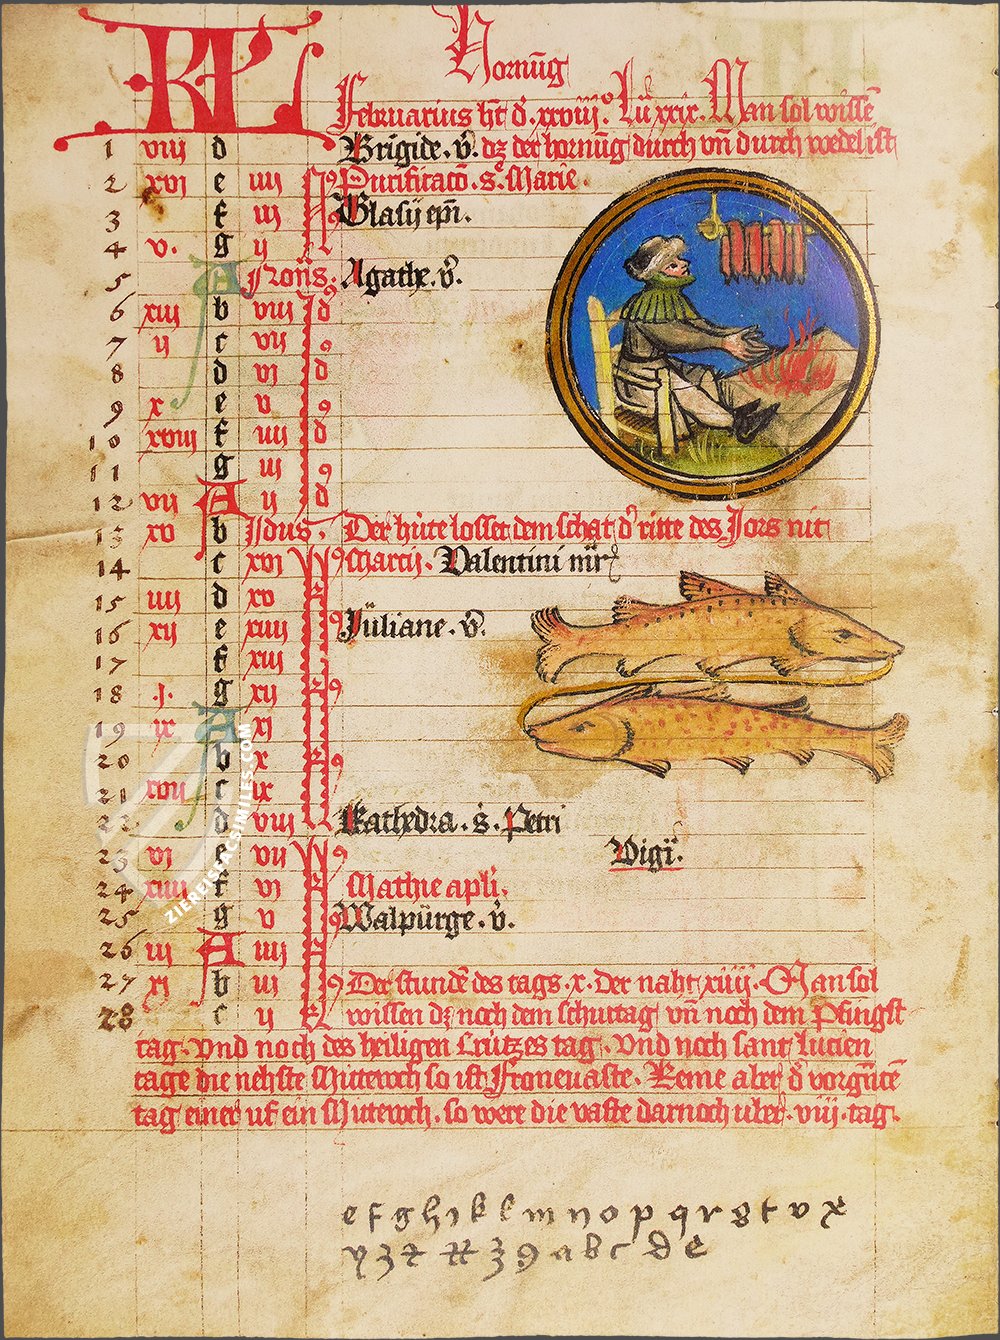 KL Hornūg
Februarius ht d' xxviij° Lū xxix. Man sol wissē
1 viij d Brigide. v'. dz der hornūg durch vn̄ durch wedel ist
2 xvj e iiij N9 Purificatō. s. Marie.
3 f iij N9 Blasij epī.
4 v. g ij
5 A Nonis. Agathe. v'.
6 xiij b viij Id9
7 ij c vij 9
8 d vj d
9 x e v 9
10 xviij f iiij d
11 g iij 9
12 vij A ij d
13 xv b Idus. Der hüte losset dem schat d' ritte des Jors nit
14 c xvj K9 Marcij. Valentini mr
15 iiij d xv
16 xij e xiiij 9 Jüliane. v'.
17 f xiij
18 .j. g xij 9
19 ix A xj
20 b x 9
21 xvij c ix
22 d viij Kathedra. s. Petri
23 vj e vij 9 Vigī.
24 xiiij f vj Mathie apli.
25 g v 9 Walpürge. v'.
26 iij A iiij
27 xj b iij 9 Der stundē des tags. x. der naht xiiij. Man sol
28 c ij wissen dz noch dem schuttag vn̄ noch dem Pfingst
tag. Vnd noch des heiligen Crützes tag. Vnd noch sant Lucien
tage die nehste Mittewoch so ist Fronevaste. Keme aber d' vorgnātē
tag einer uf ein Mittewoch. so were die vaste darnoch uber. viij. tag.
e f g h i k l m n o p q r s t v x
y z 9 a b c d e
ZIEREISFACSIMILES.COM